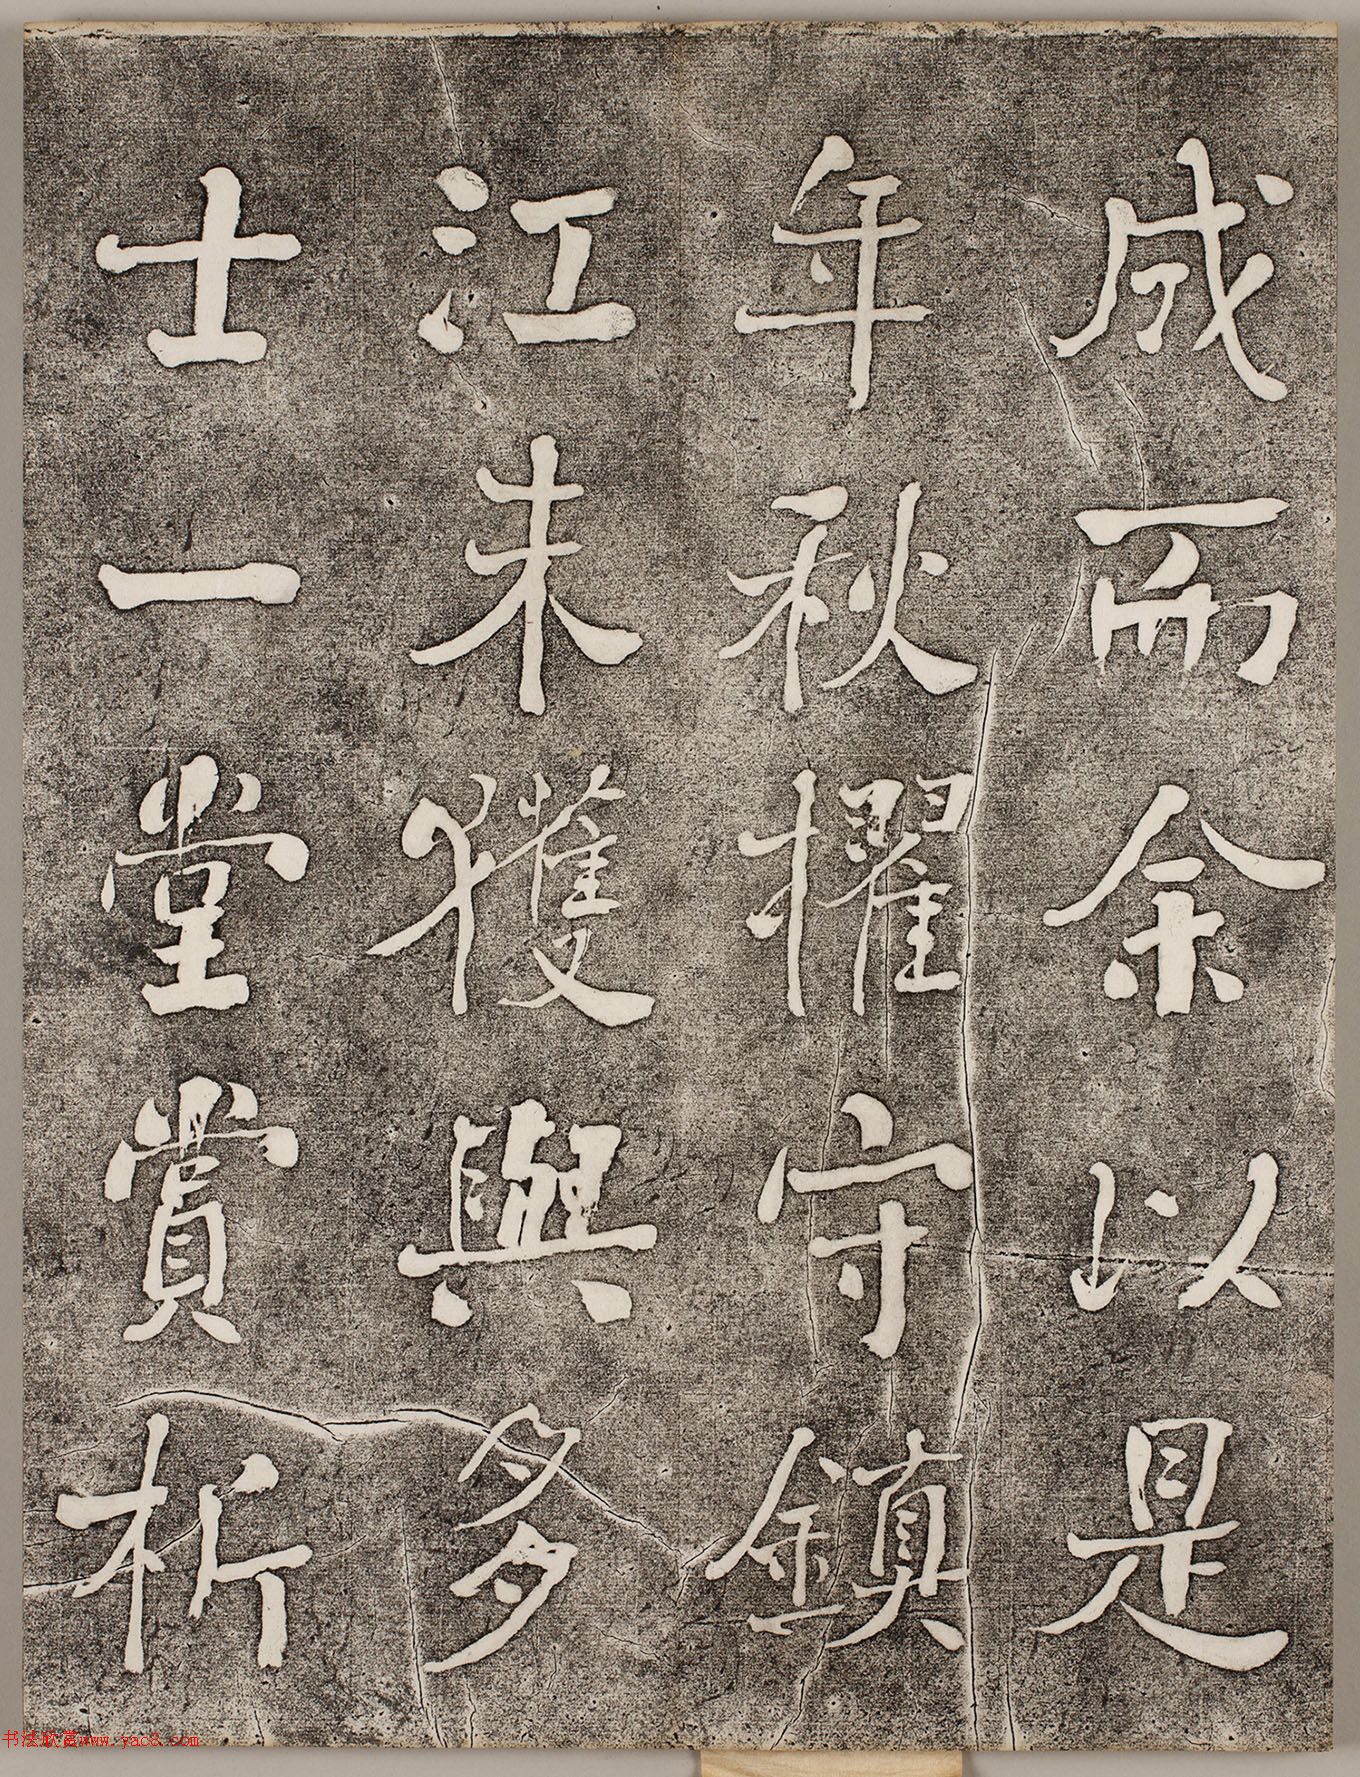 成而余以是
年秋擢守鎮
江未獲與多
士一堂賞析
书法欣赏www.yac8.com